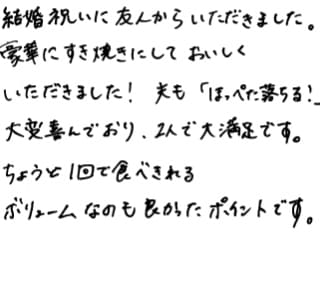 結婚祝いに友人からいただきました。
豪華にすき焼きにしておいしく
いただきました！ 夫も「ほっぺた落ちる！」
大変喜んでおり、2人で大満足です。
ちょうど1回で食べきれる
ボリュームなのも良かったポイントです。